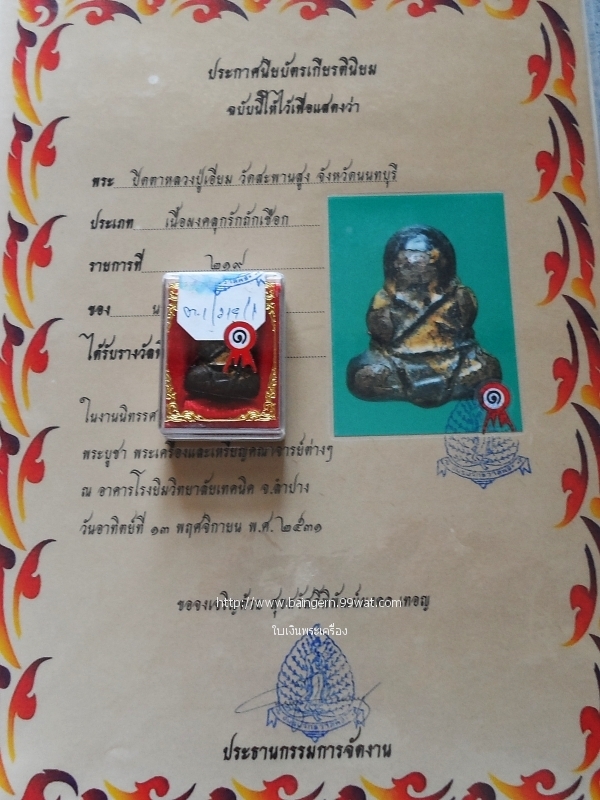 ประกาศนียบัตรเกียรตินิยม
ฉบับนี้ให้ไว้เพื่อแสดงว่า
พระ ปิดตาหลวงปู่เอี่ยม วัดสะพานสูง จังหวัดนนทบุรี
ประเภท เนื้อผงคลุกรักถักเชือก
รายการที่ ๒๑๙
ของ
ได้รับรางวัลที่
๑
๑
ในงานนิทรรศ
พระบูชา พระเครื่องและเหรียญคณาจารย์ต่างๆ
ณ อาคารโรงยิมวิทยาลัยเทคนิค จ.ลำปาง
วันอาทิตย์ที่ ๑๓ พฤศจิกายน พ.ศ. ๒๕๓๑
http://www.bangern.99wat.com
ใบเงินพระเครื่อง
ประธานกรรมการจัดงาน